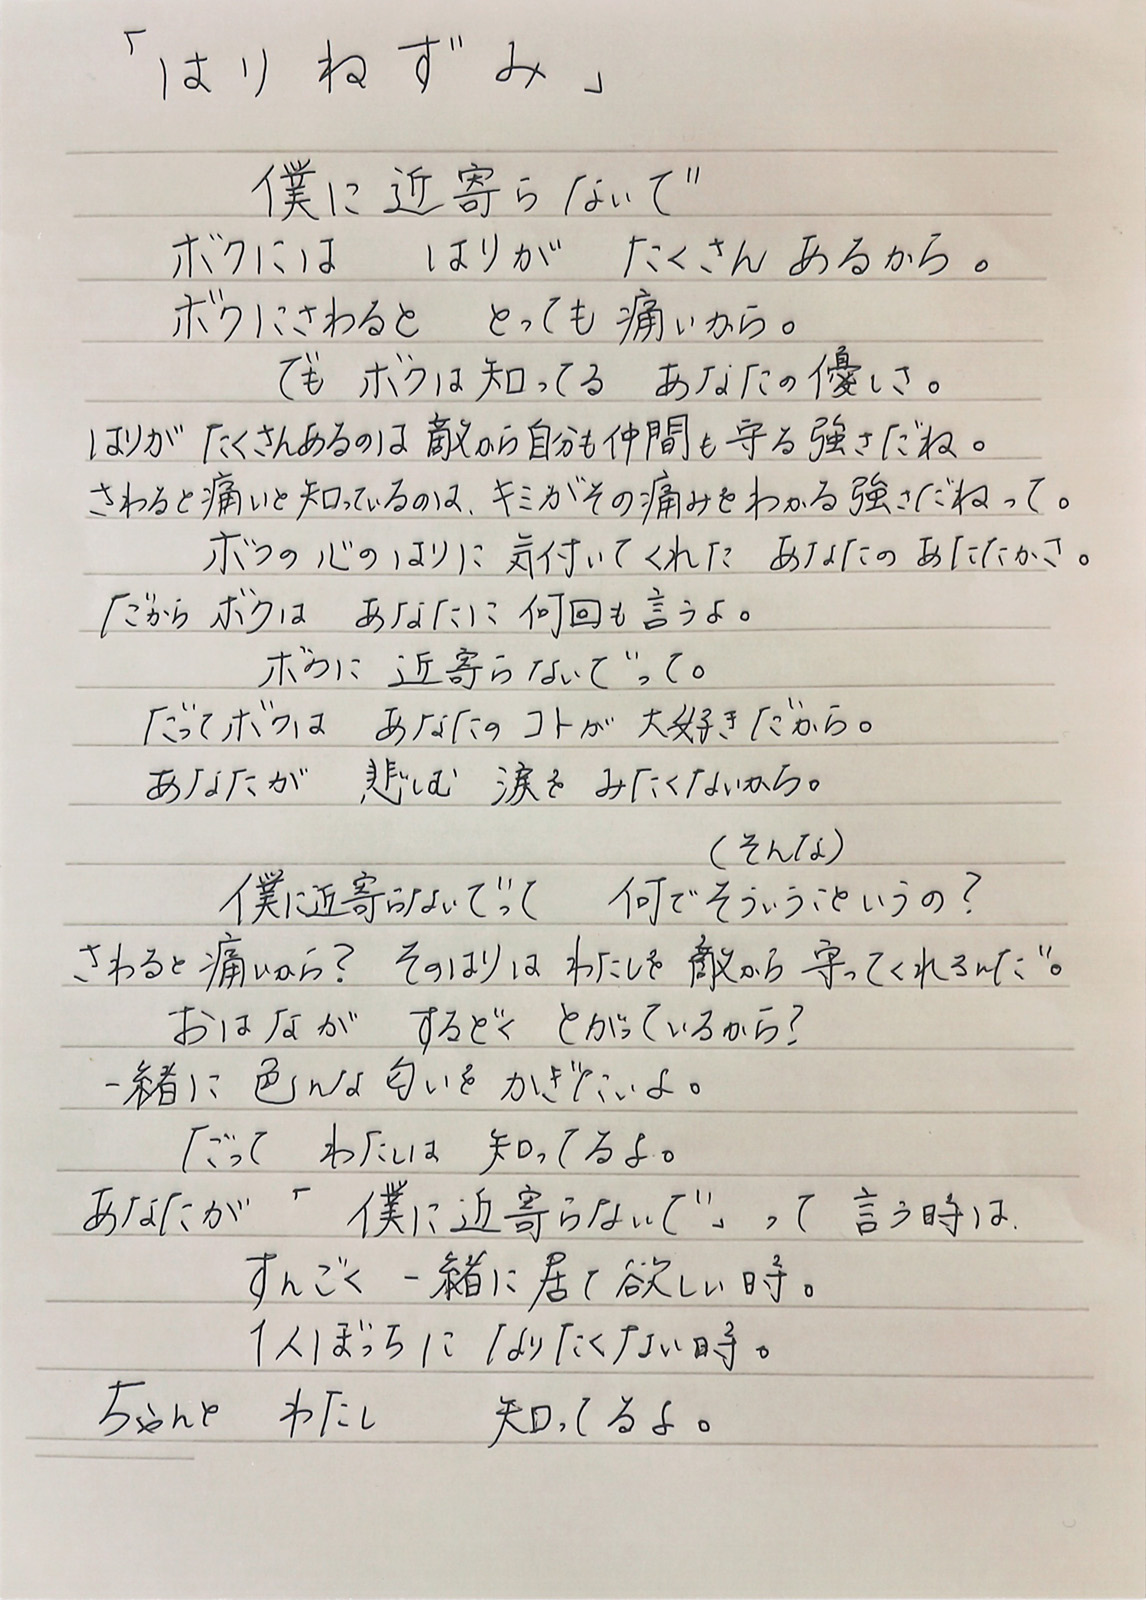 「はりねずみ」
僕に近寄らないで
ボクには はりが たくさん あるから。
ボクにさわると とっても痛いから。
でも ボクは知ってる あなたの優しさ。
はりが たくさんあるのは 敵から自分も仲間も守る強さだね。
さわると痛いと知っているのは、キミがその痛みをわかる強さだねって。
ボクの心のはりに 気付いてくれた あなたのあたたかさ。
だから ボクは あなたに 何回も言うよ。
ボクに 近寄らないでって。
だってボクは あなたの コトが 大好きだから。
あなたが 悲しむ 涙を みたくないから。
(そんな)
僕に近寄らないでって 何でそういうこというの?
さわると痛いから? そのはりは わたしを 敵から 守ってくれるんだ。
おはなが するどく とがっているから?
一緒に 色んな匂いを かぎたいよ。
だって わたしは 知ってるよ。
あなたが「 僕に近寄らないで」って 言う時は、
すんごく 一緒に居て欲しい時。
1人ぼっちに なりたくない時。
ちゃんと わたし 知ってるよ。